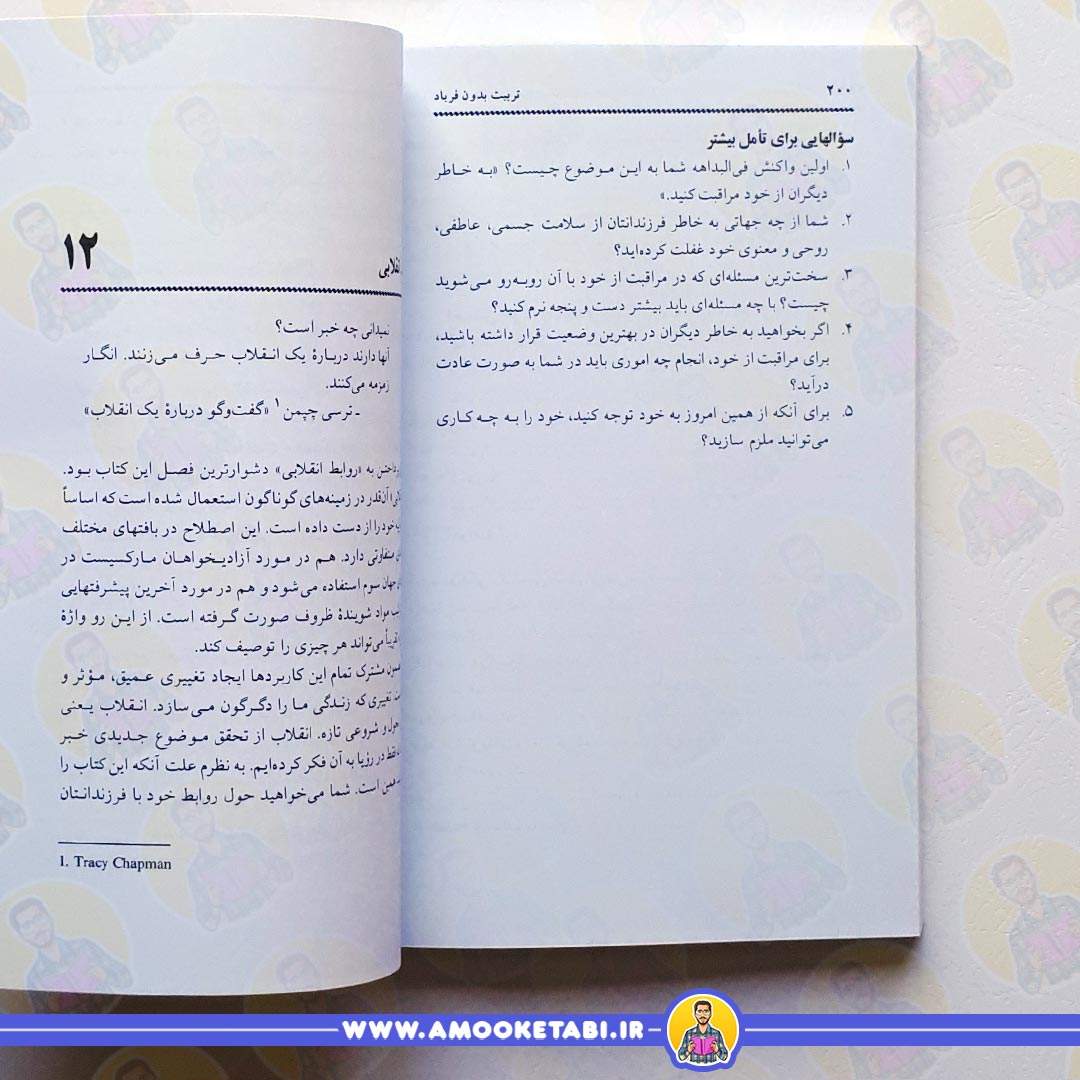 ۲۰۰
تربیت بدون فریاد
سؤالهایی برای تأمل بیشتر
۱. اولین واکنش فی‌البداهه شما به این موضوع چیست؟ «به خاطر
دیگران از خود مراقبت کنید.»
۲. شما از چه جهاتی به خاطر فرزندانتان از سلامت جسمی، عاطفی،
روحی و معنوی خود غفلت کرده‌اید؟
۳. سخت‌ترین مسئله‌ای که در مراقبت از خود با آن روبه‌رو می‌شوید
چیست؟ با چه مسئله‌ای باید بیشتر دست و پنجه نرم کنید؟
۴. اگر بخواهید به خاطر دیگران در بهترین وضعیت قرار داشته باشید،
برای مراقبت از خود، انجام چه اموری باید در شما به صورت عادت
درآید؟
۵. برای آنکه از همین امروز به خود توجه کنید، خود را به چه کاری
می‌توانید ملزم سازید؟
۱۲
نمیدانی چه خبر است؟
آنها دارند دربارهٔ یک انقلاب حرف می‌زنند. انگار
زمزمه می‌کنند.
ـ ترسی چپمن۱ «گفت‌وگو دربارهٔ یک انقلاب»
به «روابط انقلابی» دشوارترین فصل این کتاب بود.
آن‌قدر در زمینه‌های گوناگون استعمال شده است که اساساً
خود را از دست داده است. این اصطلاح در بافتهای مختلف
متفاوتی دارد. هم در مورد آزادیخواهان مارکسیست در
جهان سوم استفاده می‌شود و هم در مورد آخرین پیشرفتهایی
مواد شویندهٔ ظروف صورت گرفته است. از این رو واژهٔ
می‌تواند هر چیزی را توصیف کند.
مشترک تمام این کاربردها ایجاد تغییری عمیق، مؤثر و
تغییری که زندگی ما را دگرگون می‌سازد. انقلاب یعنی
و شروعی تازه. انقلاب از تحقق موضوع جدیدی خبر
فقط در رؤیا به آن فکر کرده‌ایم. به نظرم علت آنکه این کتاب را
همین است. شما می‌خواهید حول روابط خود با فرزندانتان
1. Tracy Chapman
WWW.AMOOKETABI.IR